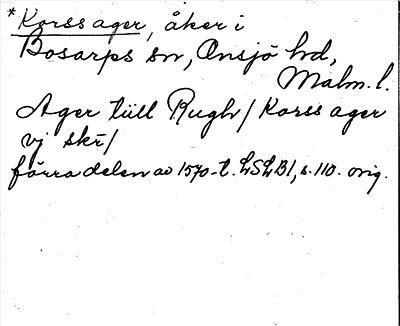 *Korssager, åker i
Bosarps sn, Onsjö hd,
Malm.l.
Ager tiill Rugh/Korssager
vj skr/
förra delen av 1570-t. LSLB1, s. 110. orig.